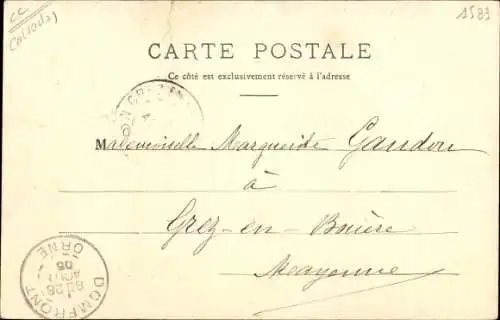 CC
Calvados
1583
CARTE POSTALE
Ce côté est exclusivement réservé à l'adresse
Mademoiselle Marguerite Gaudon
à
Grez-en-Bouère
Mayenne
DOMFRONT
ORNE
26
AOUT
05